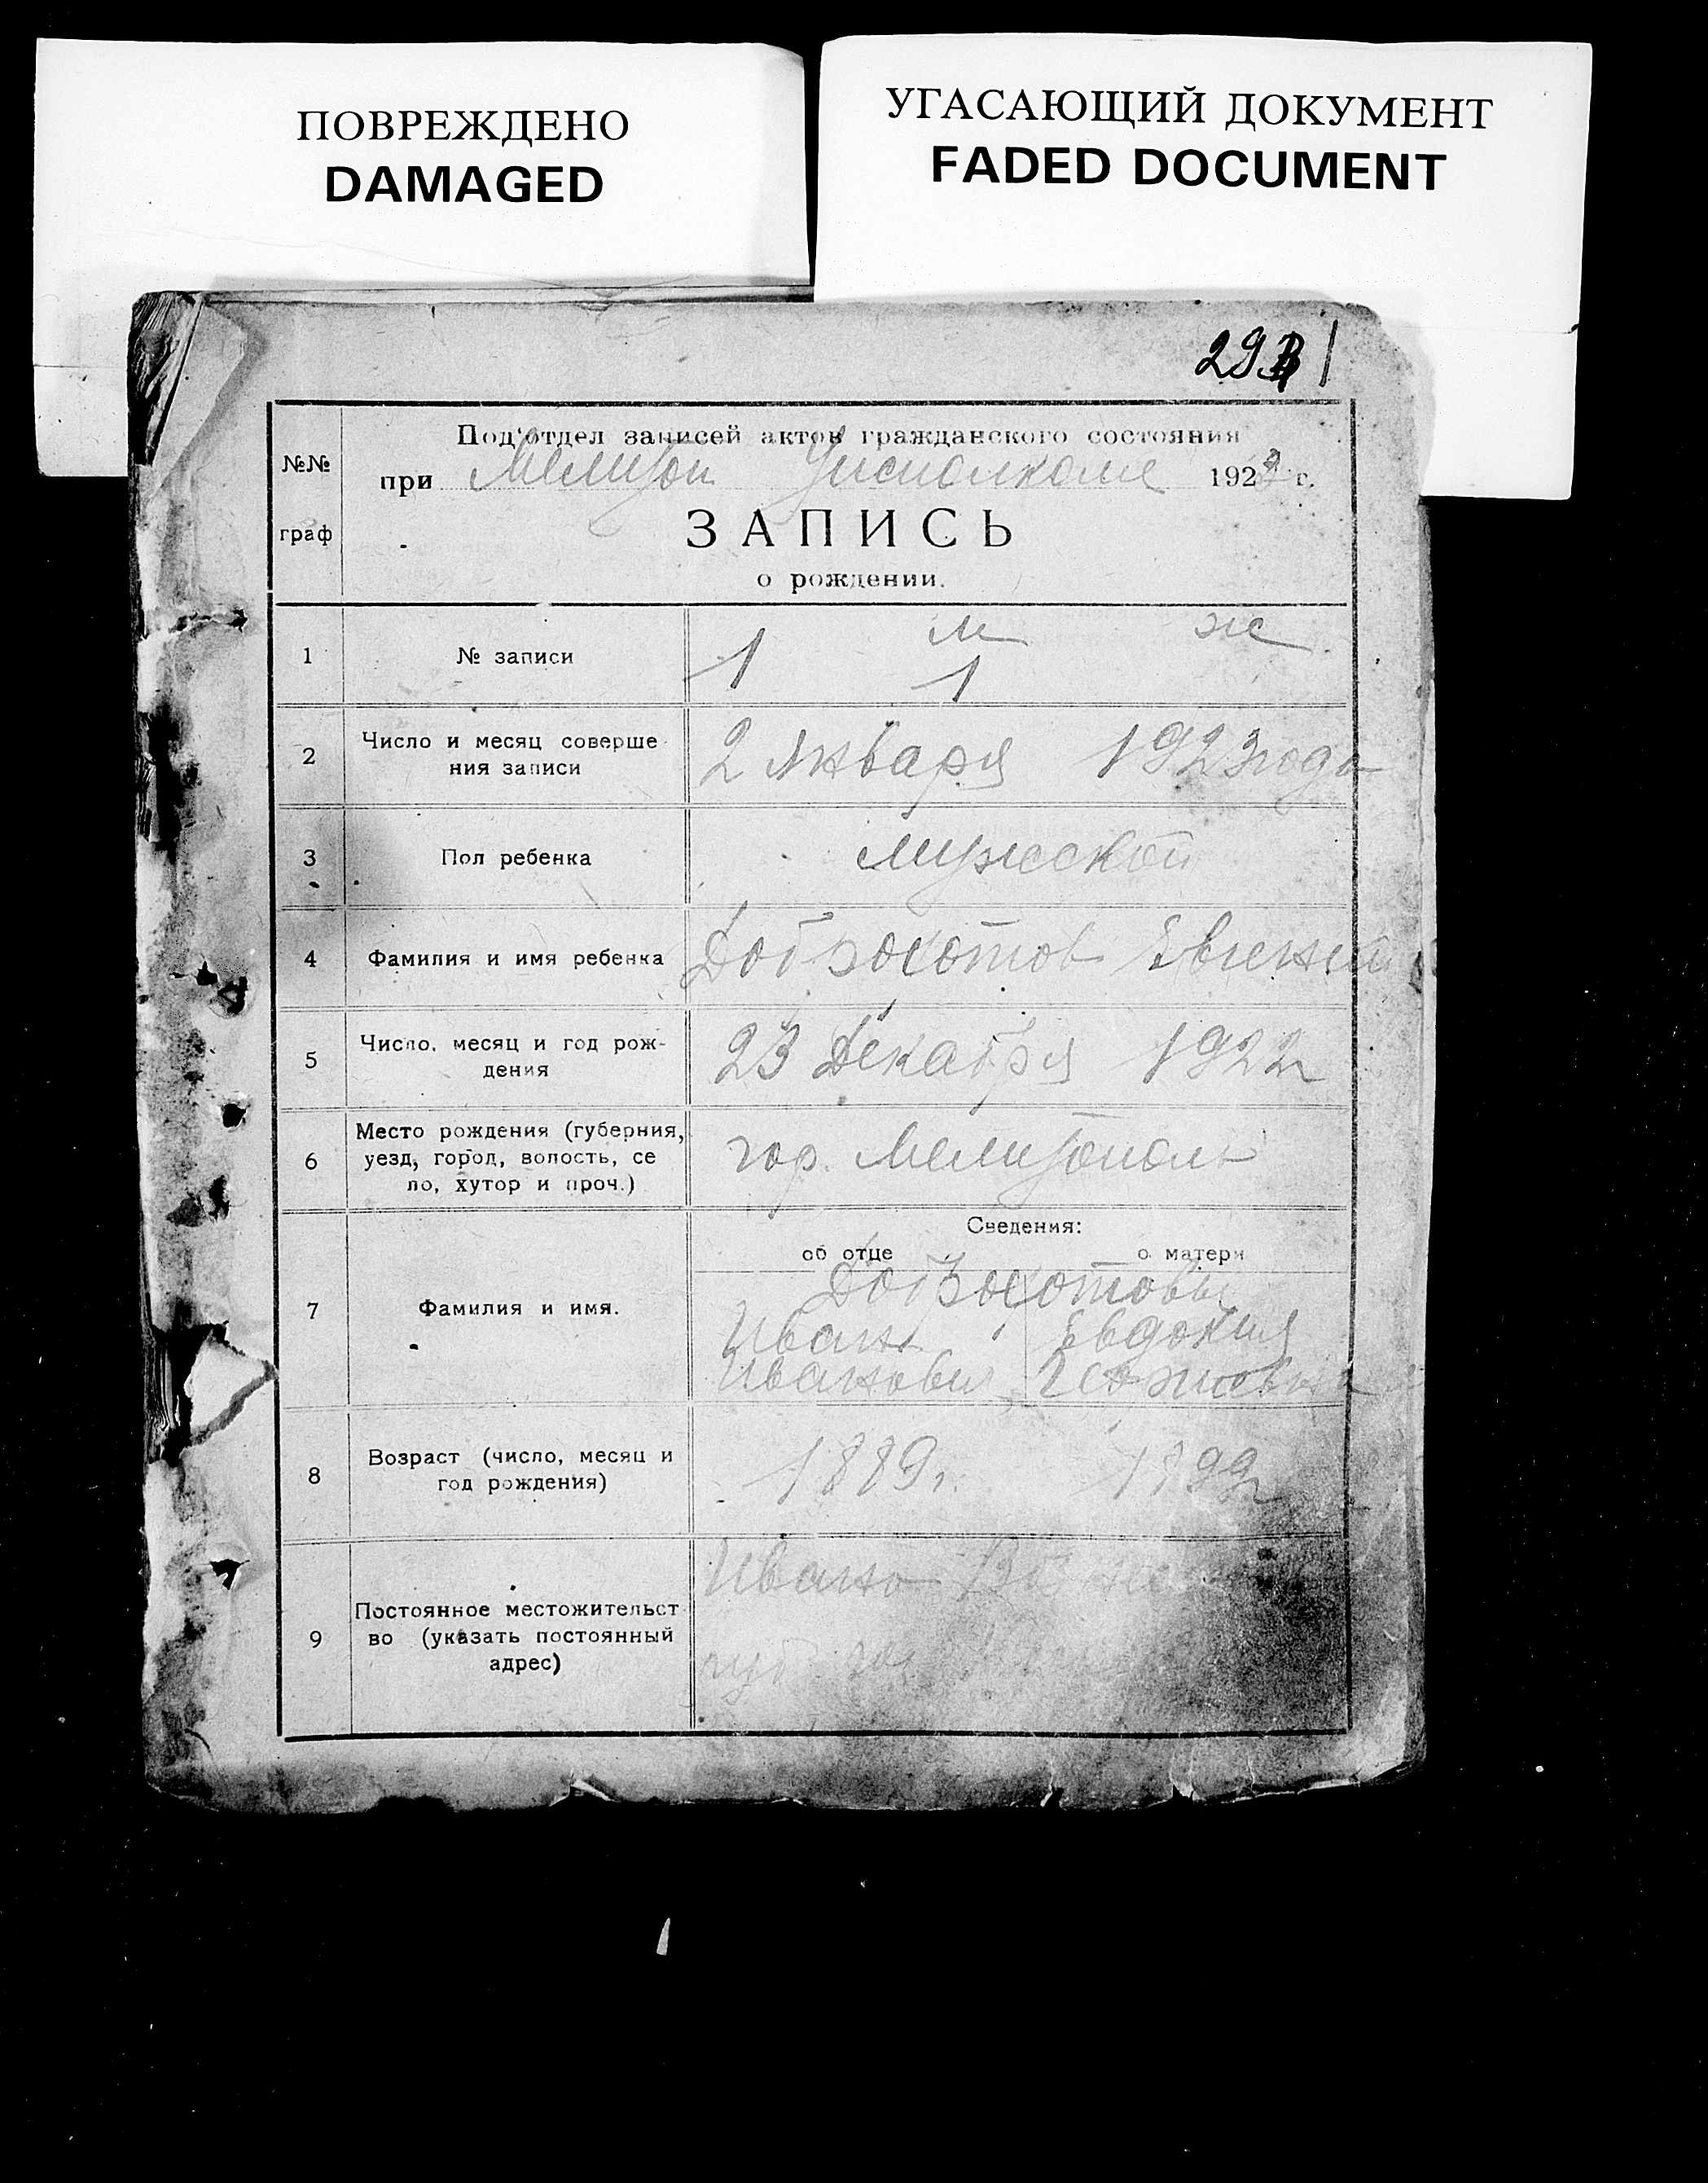 ПОВРЕЖДЕНО
DAMAGED
УГАСАЮЩИЙ ДОКУМЕНТ
FADED DOCUMENT
29
№№
граф
Под'отдел записей актов гражданского состояния
при Мелитоп Уисполкоме 1923 г.
ЗАПИСЬ
о рождении.
1 № записи 1 м 1 ж
2 Число и месяц соверше
ния записи
2 Января 1923 года
3 Пол ребенка мужской
4 Фамилия и имя ребенка Доброхотов Евгений
5 Число, месяц и год рож-
дения
23 Декабря 1922 г
6 Место рождения (губерния,
уезд, город, волость, се
ло, хутор и проч.)
гор. Мелитополь
Сведения:
об отце о матери
7 Фамилия и имя.
Доброхотовы
Иван Евдокия
Иванович
8 Возраст (число, месяц и
год рождения)
1889 г. 1899 г
9 Постоянное местожительст
во (указать постоянный
адрес)
Ивано
губ